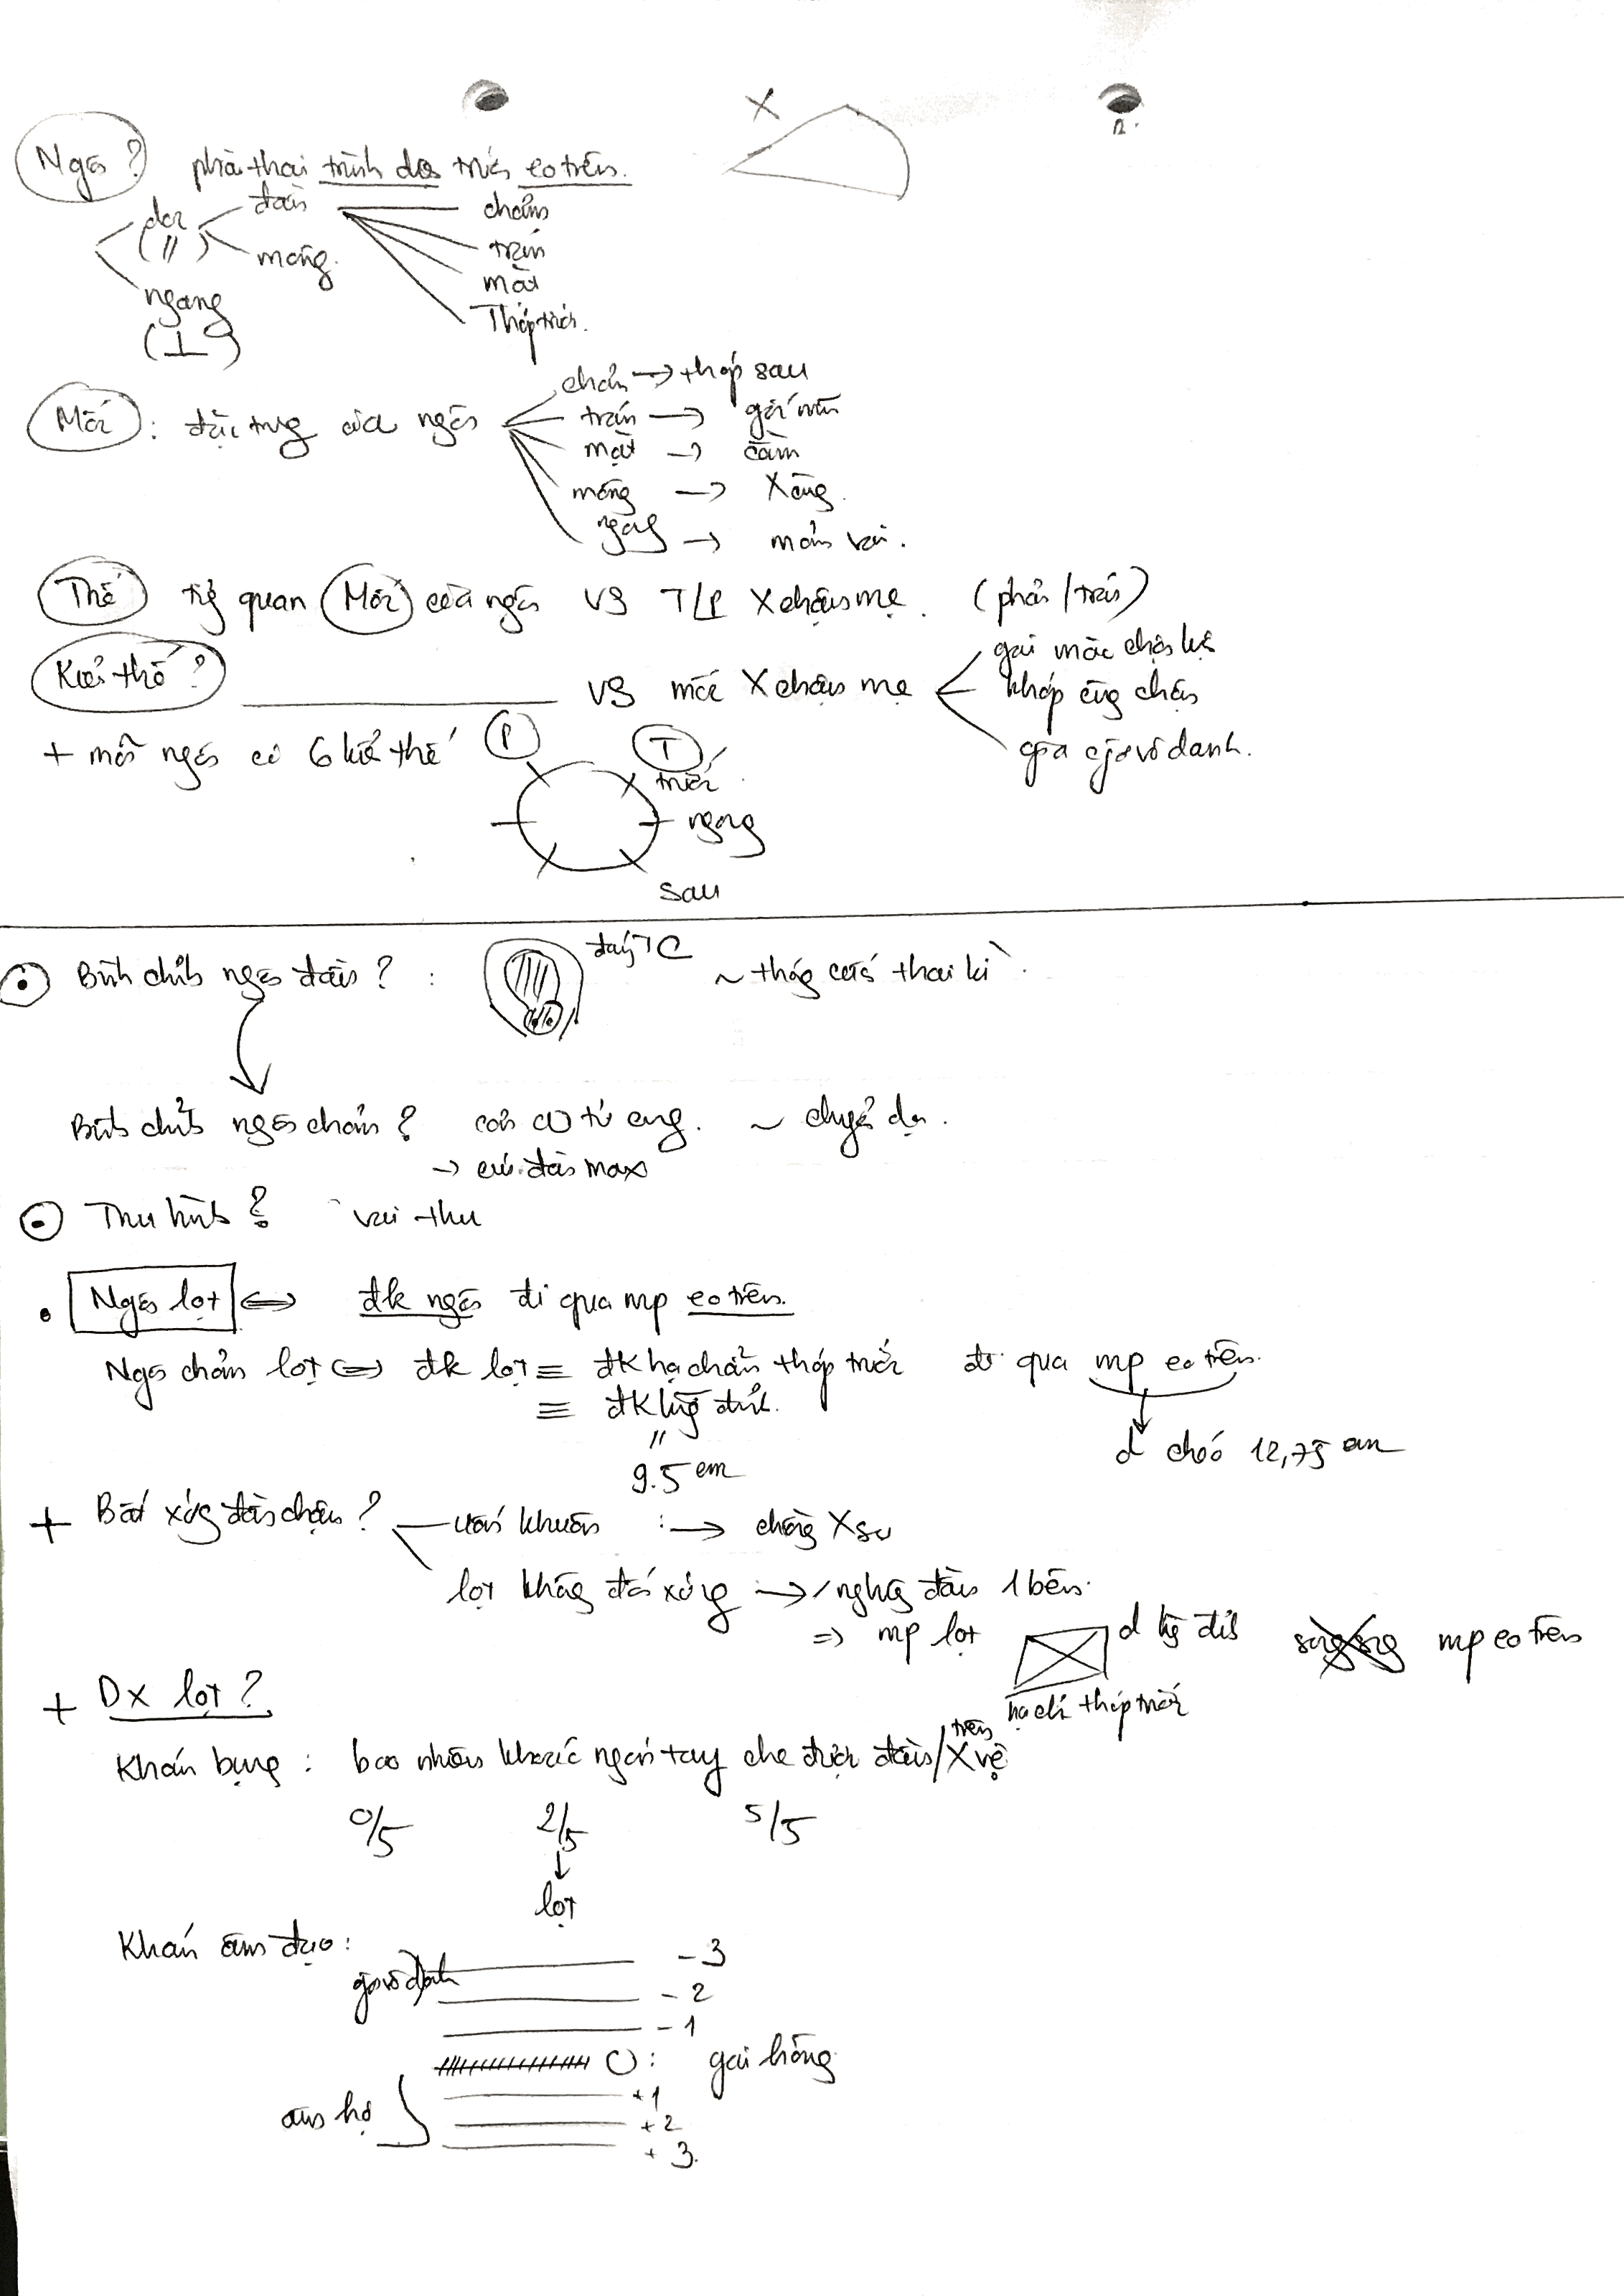 Ngôi? phần thai trình diện trước eo trên.
dọc đầu chẩm
(//) mông. trán
ngang mặt
(⊥) Thóp trước.
Mốc : đặc trưng của ngôi
chẩm → thóp sau
trán → gốc mũi
mặt → cằm
mông → X cùng.
ngang → mỏm vai.
Thế tg quan Mốc của ngôi VS T/P X chậu mẹ. (phải/trái)
Kiểu thế? VS mốc X chậu mẹ
gai mào chậu lược
khớp cùng chậu
giữa gờ vô danh.
+ mỗi ngôi có 6 kiểu thế P T
trước
ngang
sau
Bình chỉnh ngôi đầu? : đáy TC ~ tháng cuối thai kì.
Bình chỉnh ngôi chẩm? cơn co tử cung. ~ chuyển dạ.
→ cúi đầu max
Thu hình? vai thu
Ngôi lọt ⇔ đk ngôi đi qua mp eo trên.
Ngôi chẩm lọt ⇔ đk lọt ≡ đk hạ chẩm thóp trước đi qua mp eo trên.
≡ đk lưỡng đỉnh.
//
9.5 cm
d chéo 12,75 cm
+ Bất xứng đầu chậu? uốn khuôn : → chồng X sọ
lọt không đối xứng → nghiêng đầu 1 bên.
⇒ mp lọt d lưỡng đỉnh song song mp eo trên
hạ chẩm thóp trước
+ Dx lọt?
Khám bụng : bao nhiêu khoát ngón tay che được đầu/trên X vệ
0/5 2/5 5/5
↓
lọt
Khám âm đạo:
gờ vô danh -3
-2
-1
0 : gai hông
âm hộ +1
+2
+3.